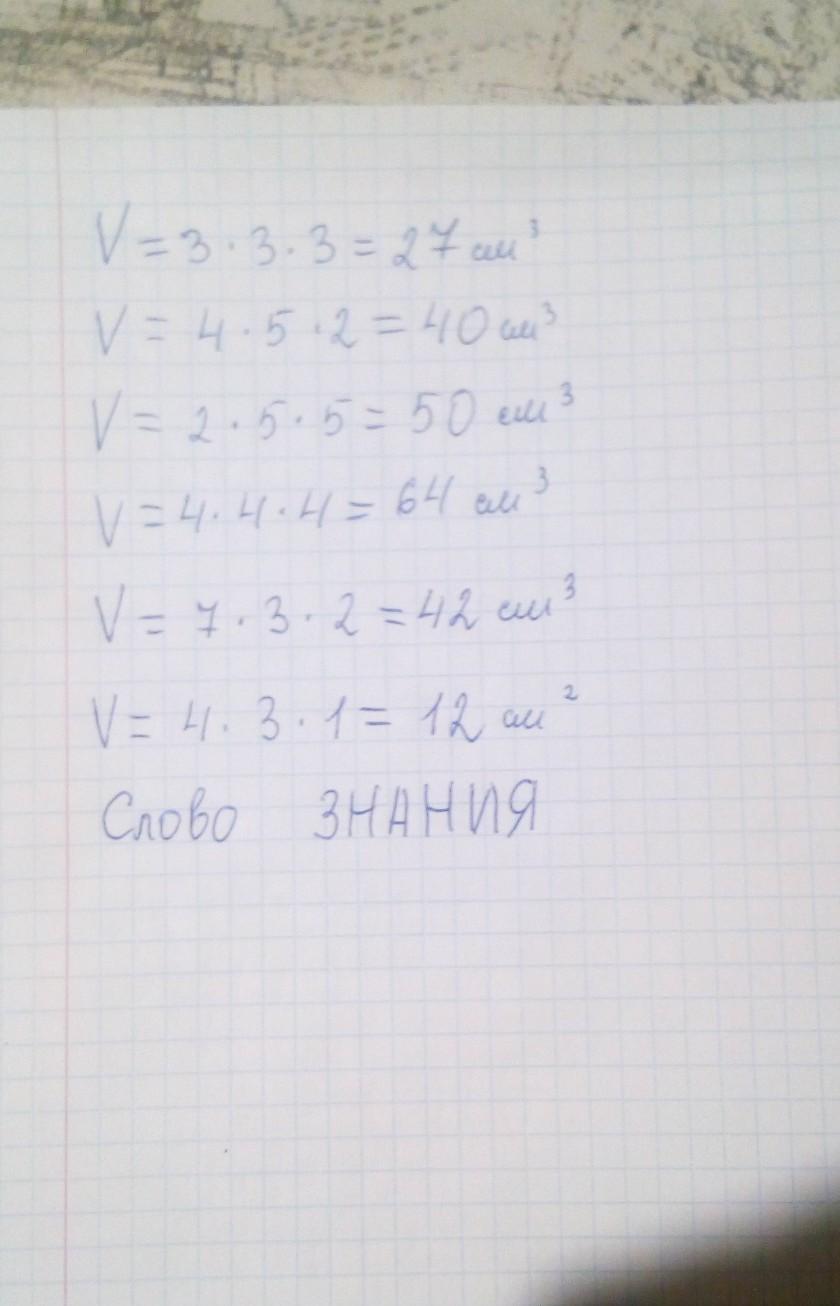 V = 3 · 3 · 3 = 27 см³
V = 4 · 5 · 2 = 40 см³
V = 2 · 5 · 5 = 50 см³
V = 4 · 4 · 4 = 64 см³
V = 7 · 3 · 2 = 42 см³
V = 4 · 3 · 1 = 12 см²
Слово ЗНАНИЯ